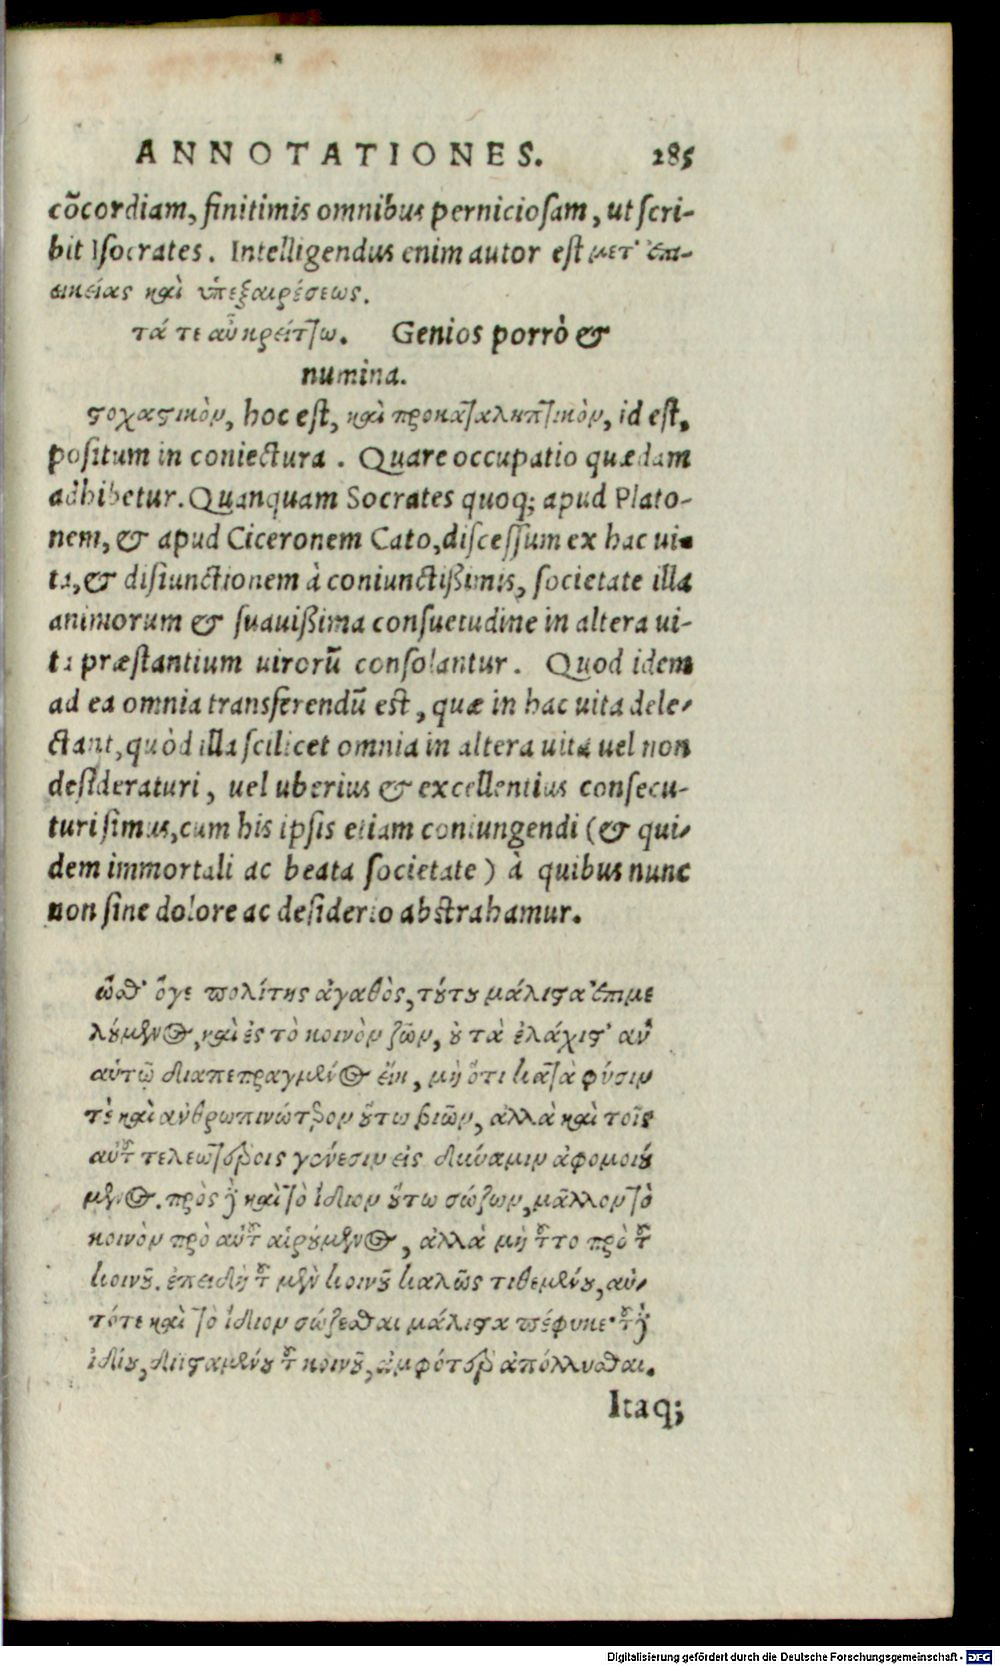 ANNOTATIONES. 285
cõcordiam, finitimis omnibus perniciosam, ut scri-
bit Isocrates. Intelligendus enim autor est μετ' ἐπι-
εικείας καὶ ὑπεξαιρέσεως.
τά τε αὖ κρείττω. Genios porrò &
numina.
στοχαστικὸν, hoc est, καὶ προκαταληπτικὸν, id est,
positum in coniectura. Quare occupatio quædam
adhibetur. Quanquam Socrates quoq; apud Plato-
nem, & apud Ciceronem Cato, discessum ex hac ui-
ta, & disiunctionem à coniunctißimis, societate illa
animorum & suauißima consuetudine in altera ui-
ta præstantium uirorũ consolantur. Quod idem
ad ea omnia transferendũ est, quæ in hac uita dele-
ctant, quòd illa scilicet omnia in altera uita uel non
desideraturi, uel uberius & excellentius consecu-
turi simus, cum his ipsis etiam coniungendi (& qui-
dem immortali ac beata societate) à quibus nunc
non sine dolore ac desiderio abstrahamur.
ὥσθ' ὅγε πολίτης ἀγαθὸς, τούτου μάλιστα ἐπιμε
λούμενος, καὶ ἐς τὸ κοινὸν ζῶν, οὐ τὰ ἐλάχιστ' ἂν
αὑτῷ διαπεπραγμένος εἴη, μὴ ὅτι κατὰ φύσιν
τὲ καὶ ἀνθρωπινώτερον οὕτω βιῶν, ἀλλὰ καὶ τοῖς
αὐτοῦ τελεωτέροις γονέσιν εἰς δύναμιν ἀφομοιού
μενος. πρὸς δὲ καὶ τὸ ἴδιον οὕτω σώζων, μᾶλλον τὸ
κοινὸν πρὸ αὐτοῦ αἱρούμενος, ἀλλὰ μὴ τοῦτο πρὸ τοῦ
κοινοῦ. ἐπειδὴ τοῦ μὲν κοινοῦ καλῶς τιθεμένου, αὐ-
τότε καὶ τὸ ἴδιον σώζεσθαι μάλιστα πέφυκε· τοῦ δὲ
ἰδίου, διϊσταμένου τοῦ κοινοῦ, ἀμφότερα ἀπόλλυσθαι.
Itaq;
Digitalisierung gefördert durch die Deutsche Forschungsgemeinschaft - DFG